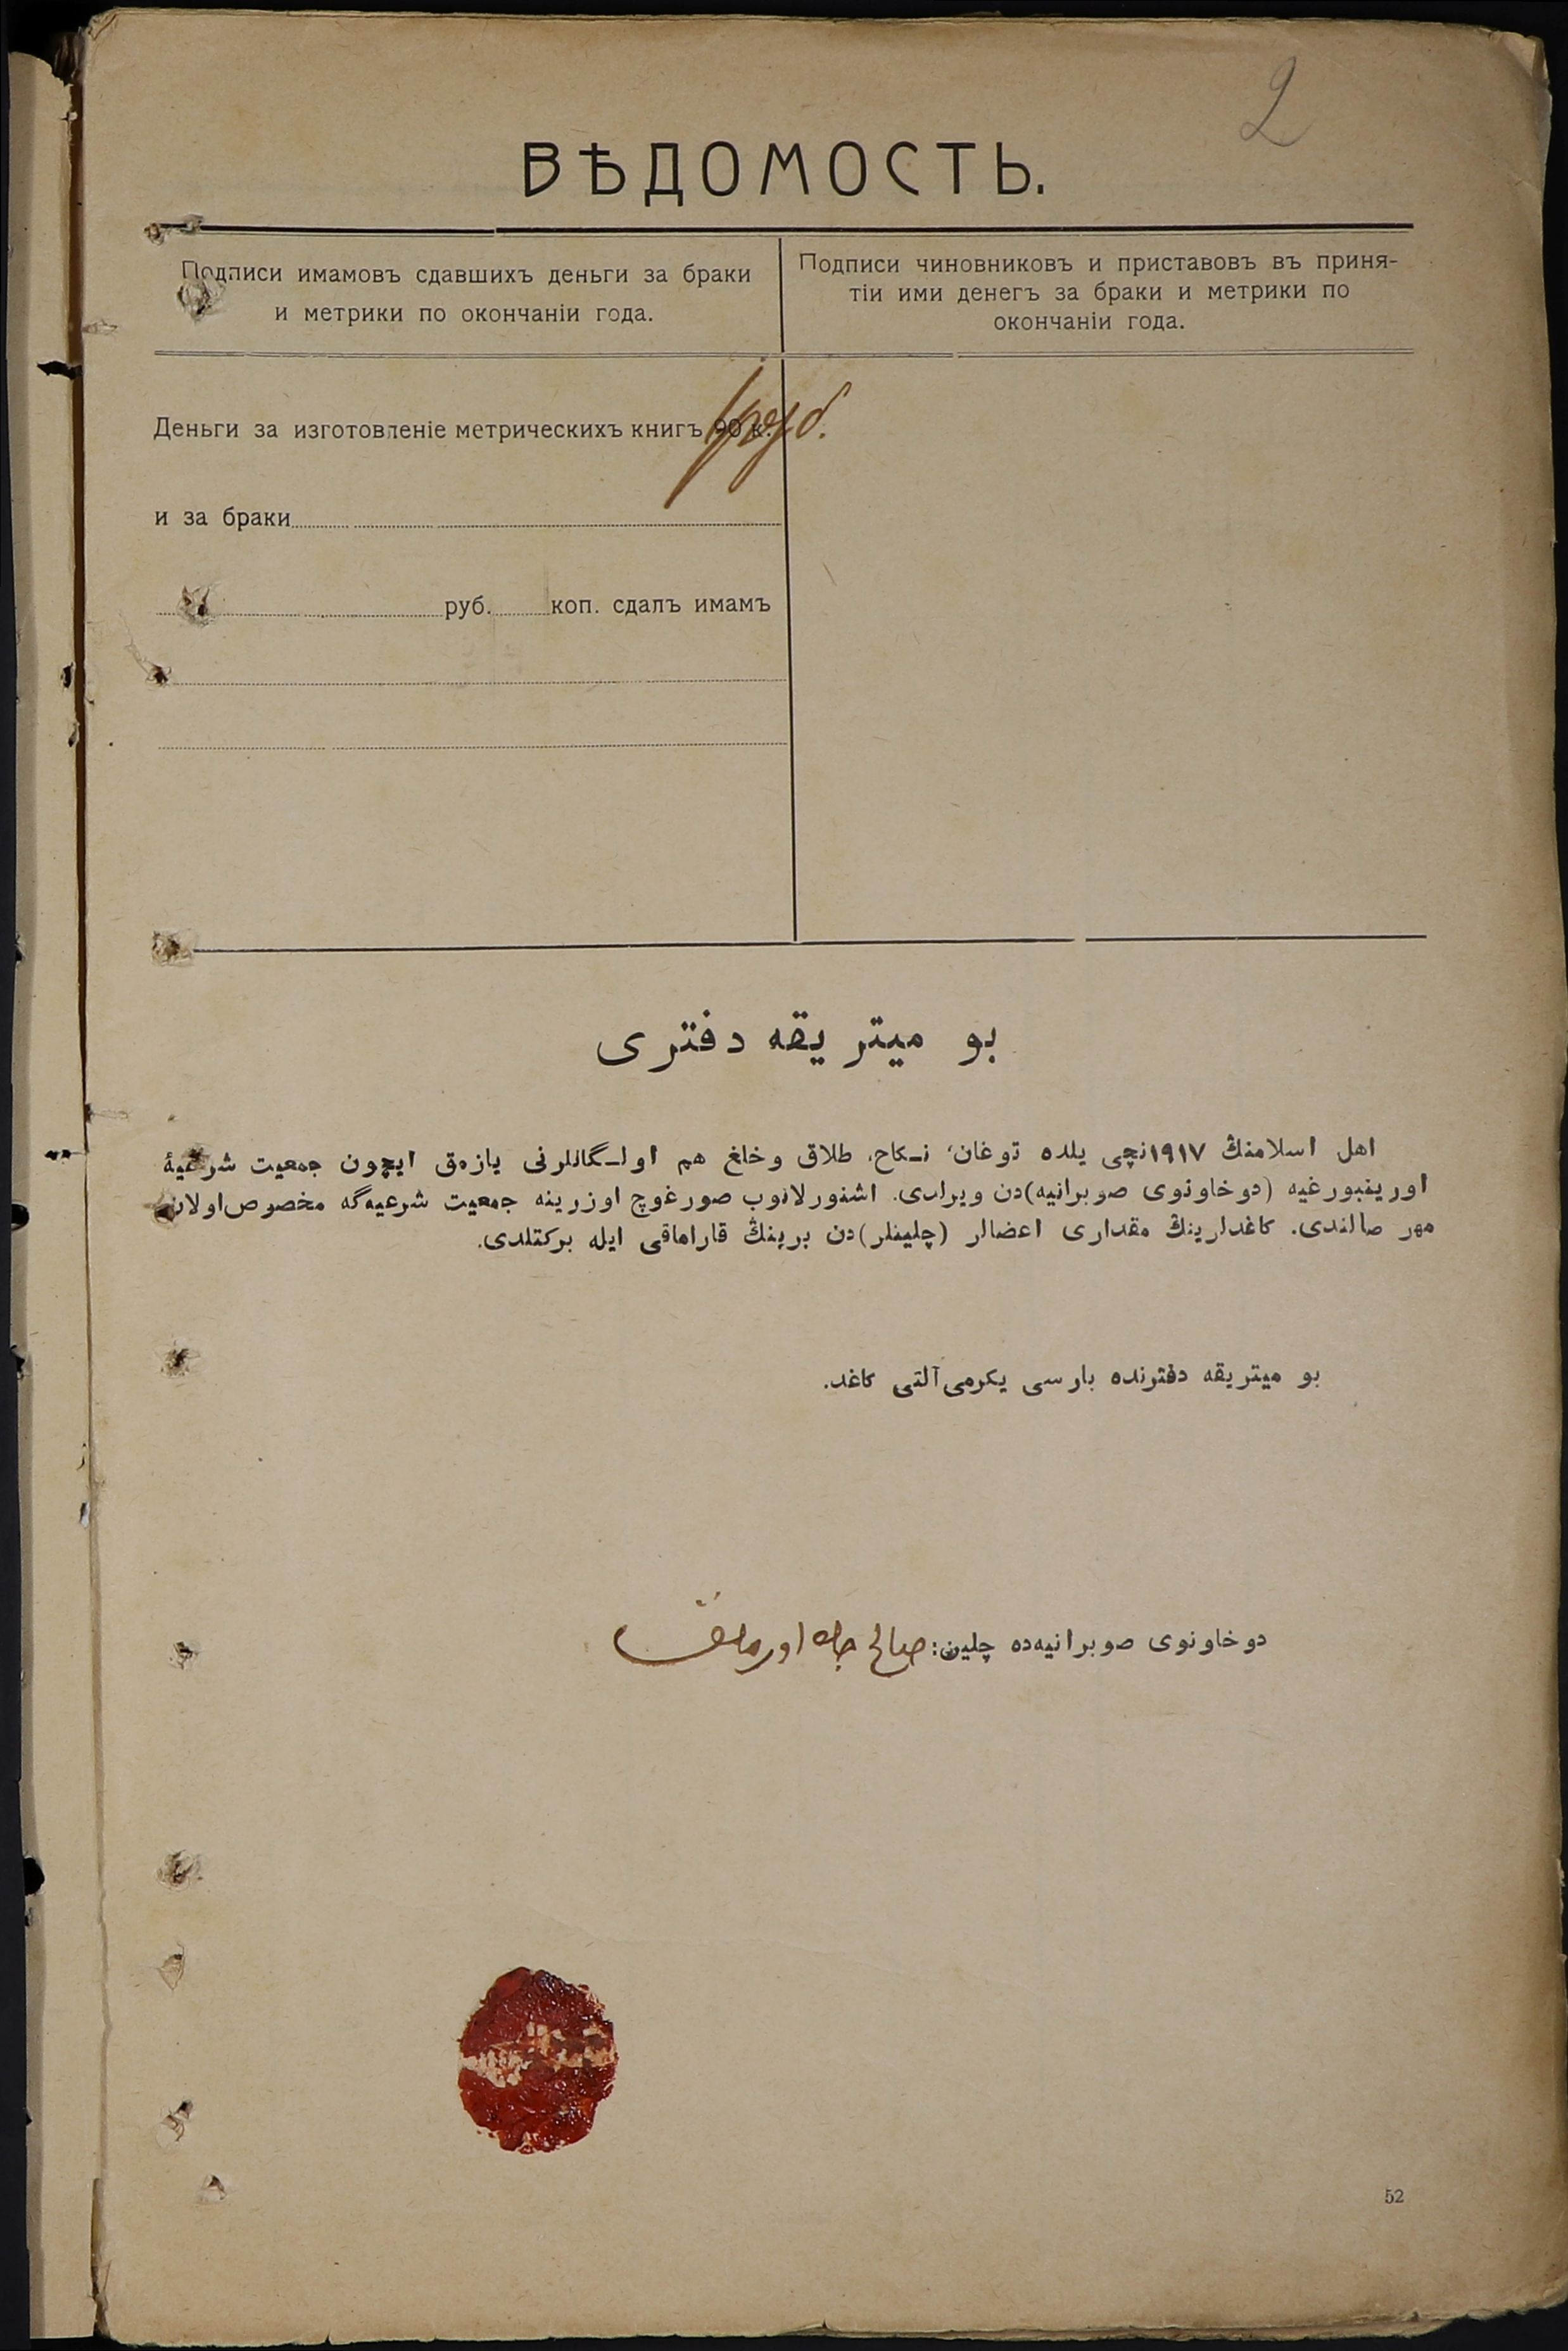 2
ВѢДОМОСТЬ.
Подписи имамовъ сдавшихъ деньги за браки
и метрики по окончаніи года.
Подписи чиновниковъ и приставовъ въ приня-
тіи ими денегъ за браки и метрики по
окончаніи года.
Деньги за изготовленіе метрическихъ книгъ 90 к. 1 руб.
и за браки
руб. коп. сдалъ имамъ
بو ميتريقه دفترى
اهل اسلامنڭ ١٩١٧نچى يلده توغان، نـكاح، طلاق وخلغ هم اولـگانلرنى يازمق ايچون جمعيت شرعيۀ
اورينبورغيه (دوخاونوى صوبرانيه)دن ويرلدى. اشنورلانوب صورغوچ اوزرينه جمعيت شرعيه‌گه مخصوص اولان
مهر صالندى. كاغدلرينڭ مقدارى اعضالر (چلينلر)دن برينڭ قاراماقى ايله بركتلدى.
بو ميتريقه دفترنده بارسى يكرمى آلتى كاغد.
دوخاونوى صوبرانيه‌ده چلين: صالح جان اورمانف
52